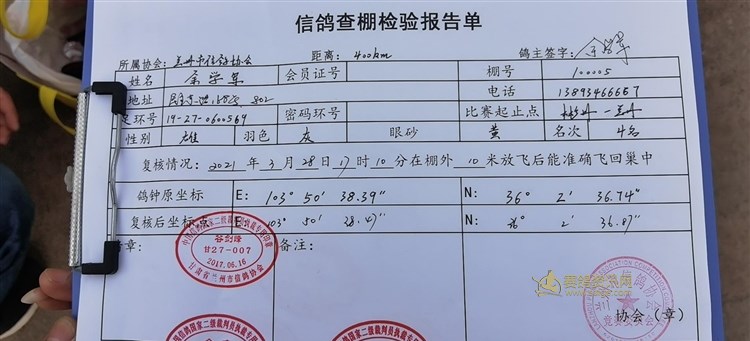 信鸽查棚检验报告单
所属协会：兰州市信鸽协会 距离：400km 鸽主签字：余学军
姓名 余学军 会员证号 棚号 100005
地址 802 电话 13893466667
足环号 19-27-0600569 密码环号 比赛起止点 兰州
性别 雄 羽色 灰 眼砂 黄 名次 4名
复核情况：2021年3月28日17时10分在棚外10米放飞后能准确飞回巢中
鸽钟原坐标 E：103° 50′ 38.39″ N：36° 2′ 36.74″
复核后坐标点 E：103° 50′ 38.47″ N：36° 2′ 36.87″
章： 备注：
中国信鸽国家二级裁判员执裁专用印章
谷剑峰
甘27-007
2017.06.16
甘肃省兰州市信鸽协会
信鸽国家二级裁判员执裁专用
信鸽国家二级裁判员执裁专用
竞赛委员会
协会（章）